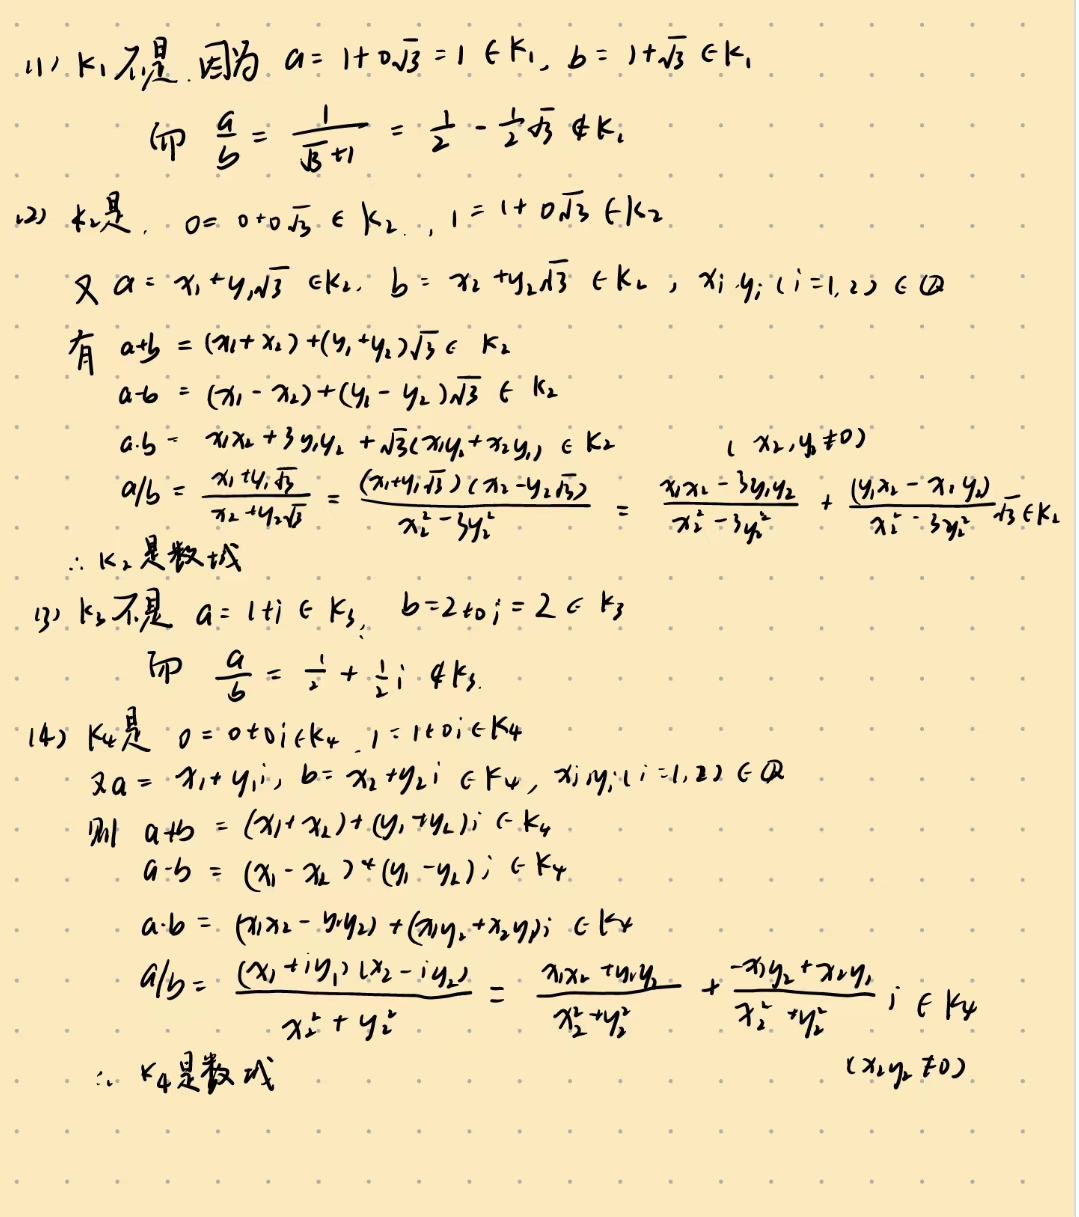 (1) K₁不是.因为 a = 1+0√3 = 1 ∈ K₁, b = 1+√3 ∈ K₁
而 a/b = 1/(√3+1) = 1/2 - 1/2√3 ∉ K₁
(2) K₂是. 0 = 0+0√3 ∈ K₂, 1 = 1+0√3 ∈ K₂
又 a = x₁+y₁√3 ∈ K₂. b = x₂+y₂√3 ∈ K₂, xᵢ.yᵢ(i=1,2) ∈ Q
有 a+b = (x₁+x₂)+(y₁+y₂)√3 ∈ K₂
a-b = (x₁-x₂)+(y₁-y₂)√3 ∈ K₂
a·b = x₁x₂+3y₁y₂+√3(x₁y₂+x₂y₁) ∈ K₂ (x₂,y₂≠0)
a/b = (x₁+y₁√3)/(x₂+y₂√3) = (x₁+y₁√3)(x₂-y₂√3)/(x₂²-3y₂²) = (x₁x₂-3y₁y₂)/(x₂²-3y₂²) + (y₁x₂-x₁y₂)/(x₂²-3y₂²)√3 ∈ K₂
∴ K₂是数域
(3) K₃不是 a = 1+i ∈ K₃, b = 2+0i = 2 ∈ K₃
而 a/b = 1/2 + 1/2i ∉ K₃.
(4) K₄是 0 = 0+0i ∈ K₄, 1 = 1+0i ∈ K₄
又a = x₁+y₁i, b = x₂+y₂i ∈ K₄, xᵢ,yᵢ(i=1,2) ∈ Q
则 a+b = (x₁+x₂)+(y₁+y₂)i ∈ K₄
a-b = (x₁-x₂)+(y₁-y₂)i ∈ K₄
a·b = (x₁x₂-y₁y₂)+(x₁y₂+x₂y₁)i ∈ K₄
a/b = (x₁+iy₁)(x₂-iy₂)/(x₂²+y₂²) = (x₁x₂+y₁y₂)/(x₂²+y₂²) + (-x₁y₂+x₂y₁)/(x₂²+y₂²) i ∈ K₄
(x₂y₂≠0)
∴ K₄是数域